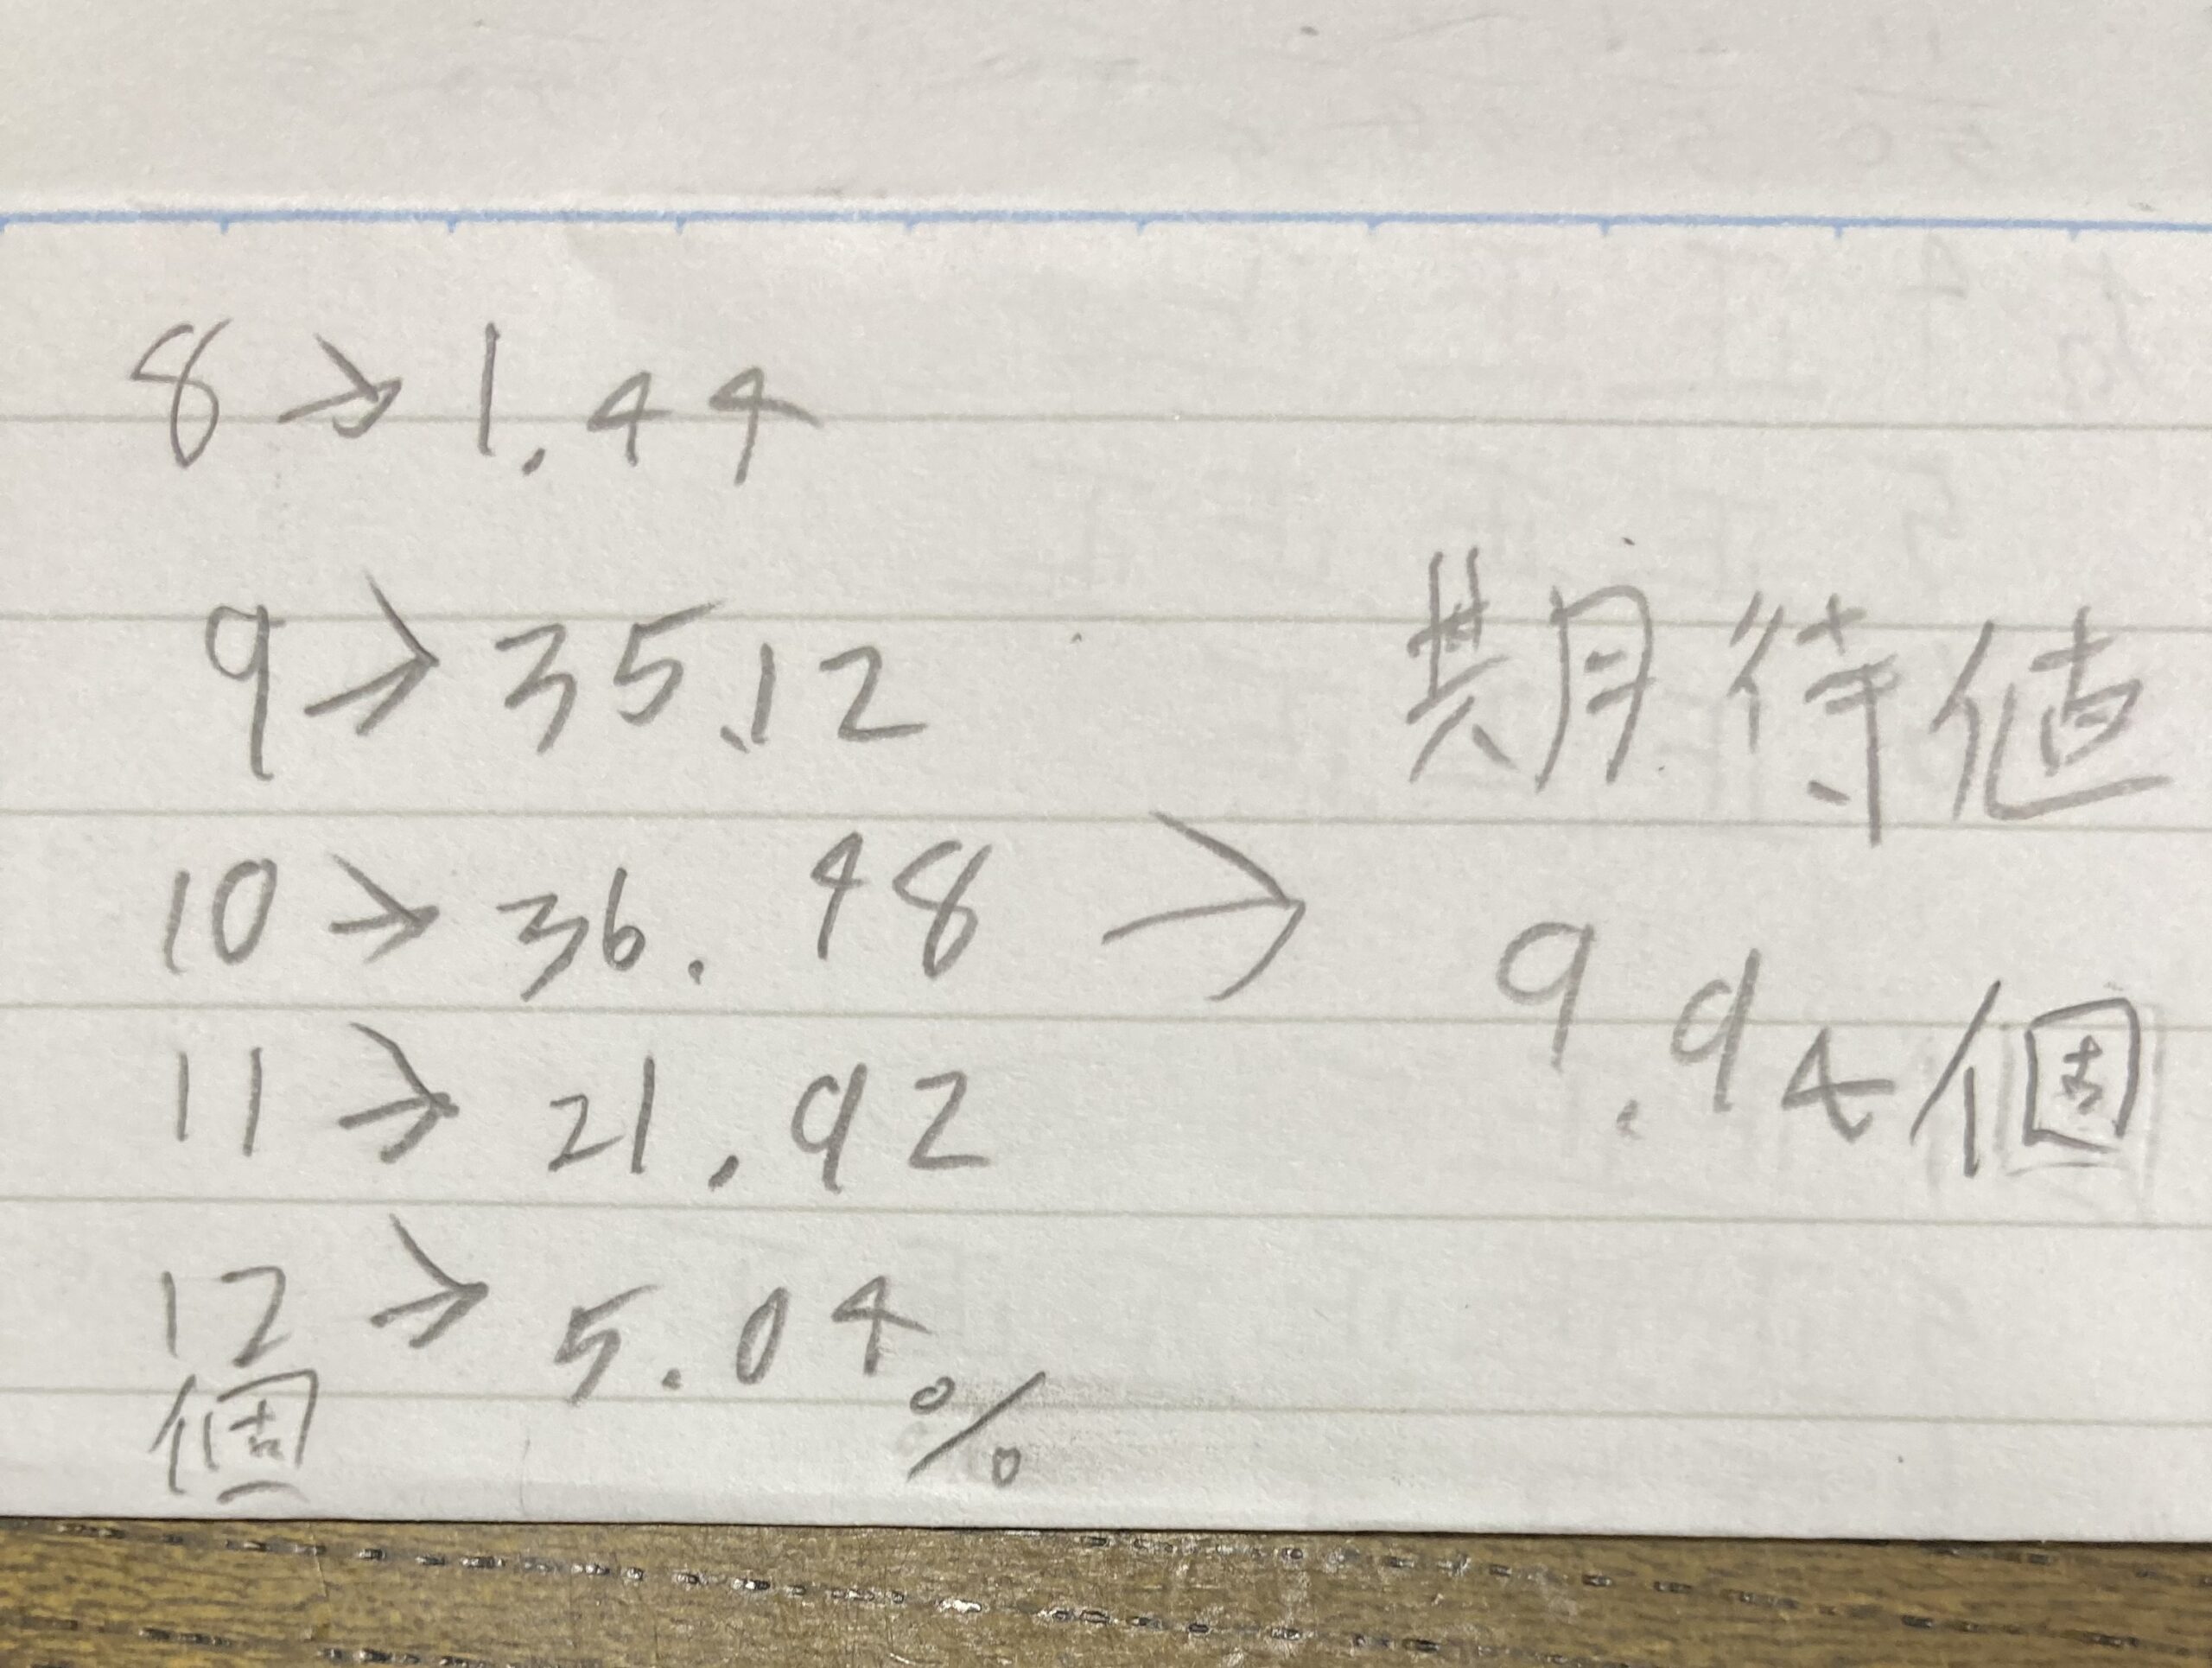 8→1.44
9→35.12
10→36.48→
11→21.92
12個→5.04%
期待値
9.94個